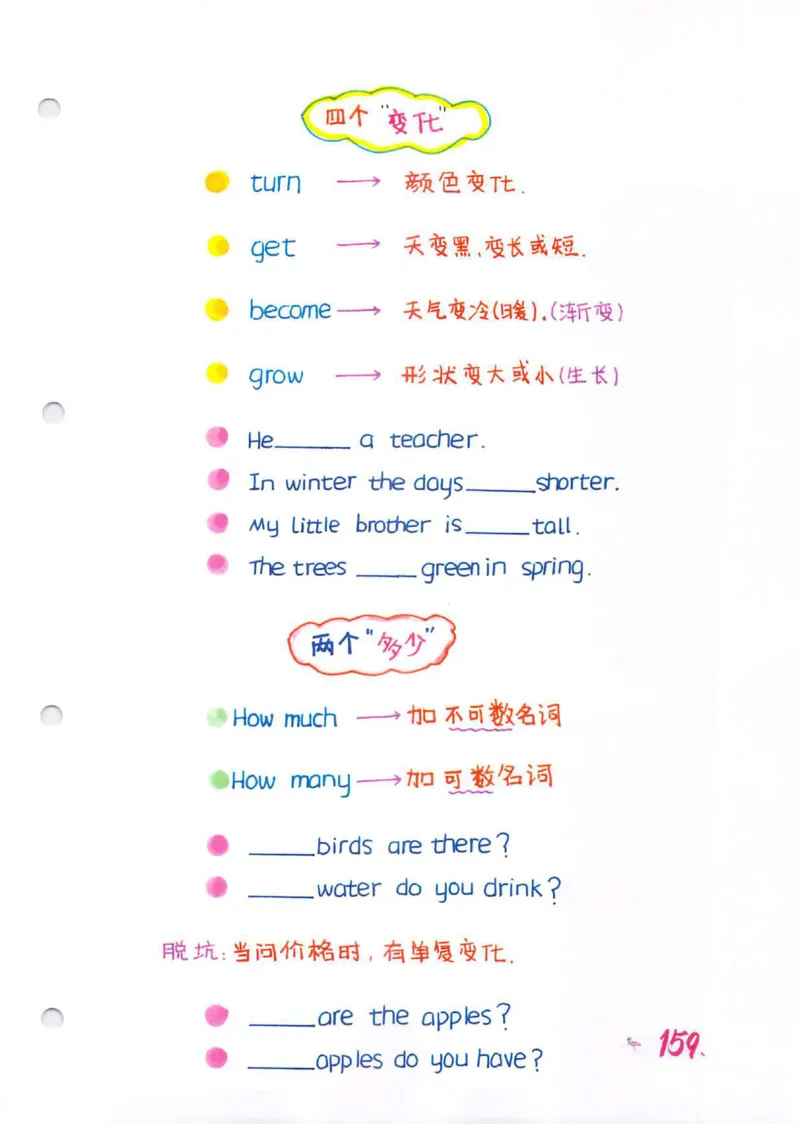 四个"变化"
turn → 颜色变化.
get → 天变黑,变长或短.
become → 天气变冷(暖).(渐变)
grow → 形状变大或小(生长)
He______ a teacher.
In winter the days______shorter.
My little brother is_____tall.
The trees _____green in spring.
两个"多少"
How much → 加不可数名词
How many → 加可数名词
_____birds are there?
_____water do you drink?
脱坑:当问价格时,有单复变化.
_____are the apples?
_____apples do you have?
159.